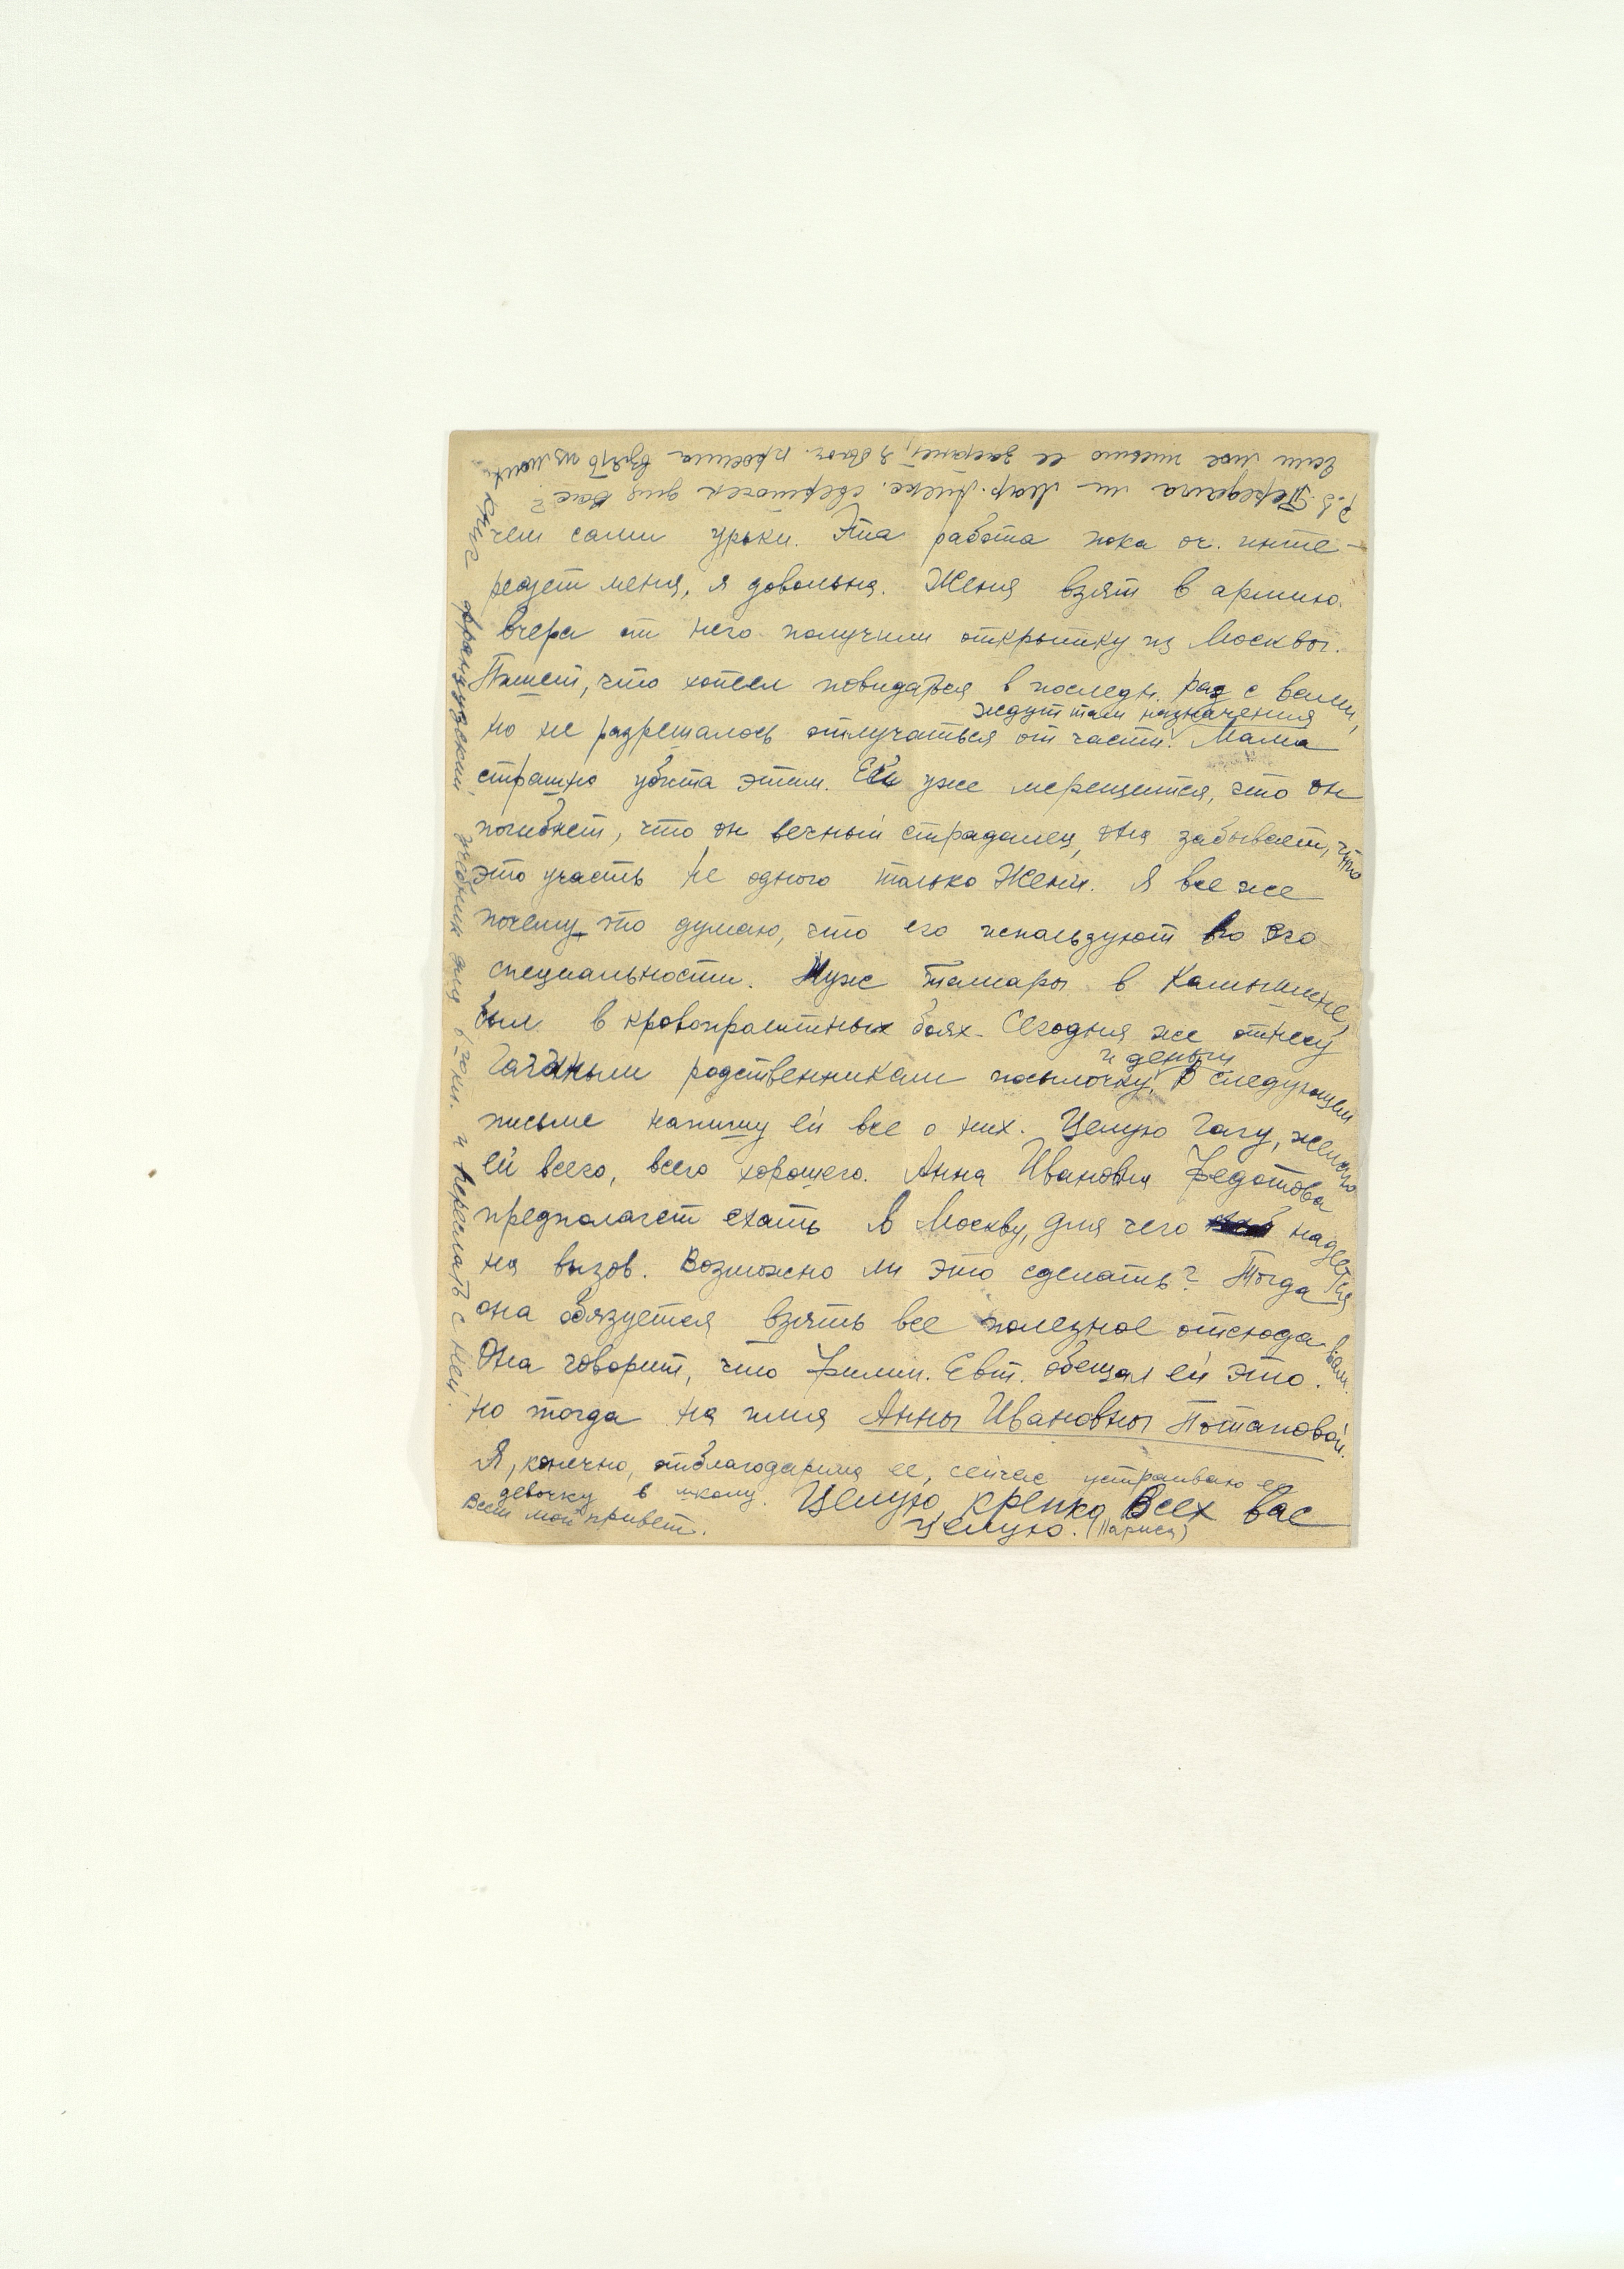 чем сами урки. Эта работа пока оч. инте-
ресует меня, я довольна. Женя взят в армию.
Вчера от него получили открытку из Москвы.
Пишет, что хотел повидаться в последн. раз с вами,
но не разрешалось отлучаться от части. Мама
ждут там назначения
страшно убита этим. Ей уже мерещится, что он
погибнет, что он вечный страдалец, она забывает, что
это участь не одного только Жени. Я все же
почему-то думаю, что его используют по его
специальности. Муж Тамары в Камышине
был в кровопролитных боях. Сегодня же отнесу
Гагиным родственникам посылочку и деньги. В следующем
письме напишу ей все о них. Целую Гагу, желаю
ей всего, всего хорошего. Анна Ивановна Федотова
предполагает ехать в Москву, для чего надеется
на вызов. Возможно ли это сделать? Тогда
она обязуется взять все полезное отсюда вам.
Она говорит, что Филип. Евт. обещал ей это.
но тогда на имя Анны Ивановны Потаповой.
Я, конечно, отблагодарила ее, сейчас устраиваю ее
девочку в школу. Целую крепко Всех вас
Всем мой привет. целую. (Лариса)
P.S. Передала ли Мар. Алекс. сверточек для Вас?
Если мое письмо ее застанет, я бы оч. просила взять из моих
книг французский учебник для 6го кл. и переслать с ней.